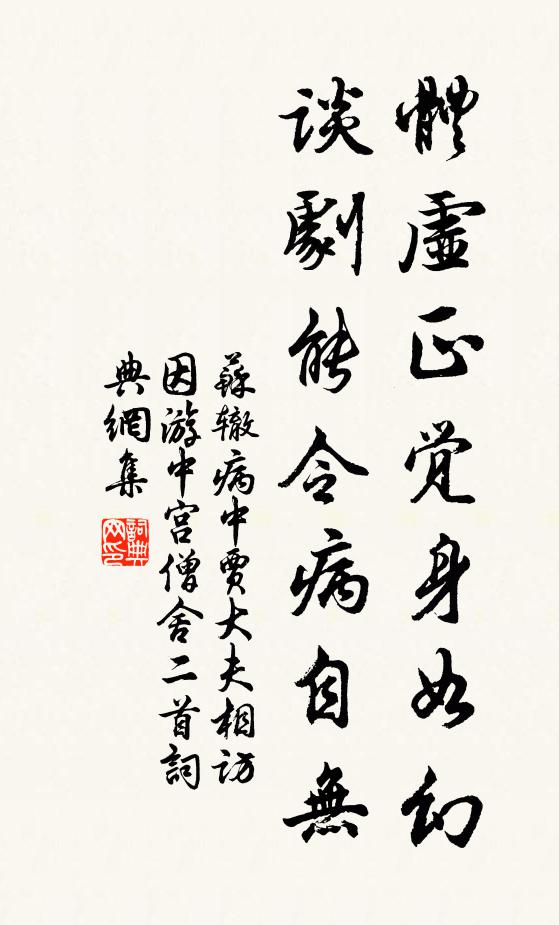 體虛正覺身如幻
談劇能令病自無
蘇辙病中賈大夫相訪
因游中宮僧舍二首詞
典網集
詞典网印